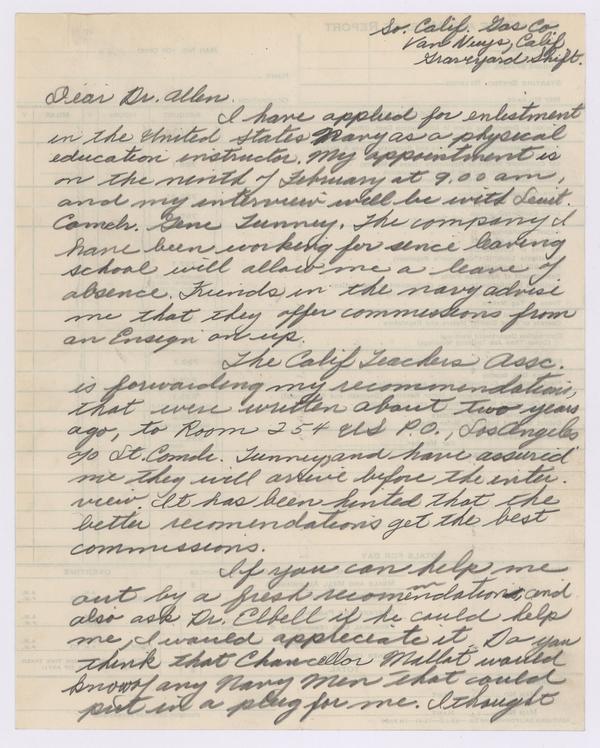 So. Calif. Gas Co
Van Nuys, Calif
Graveyard Shift.
Dear Dr. Allen.
I have applied for enlistment
in the United States Navy as a physical
education instructor. My appointment is
on the ninth of February at 9.00 am,
and my interview will be with Leut.
Comdr. Gene Tunney. The company I
have been working for sence leaving
school will allow me a leave of
absence. Friends in the navy advise
me that they offer commissions from
an Ensign on up.
The Calif Teachers Assc.
is forwarding my recommendations,
that were written about two years
ago, to Room 254 US P.O., Los Angeles
c/o Lt. Comdr. Tunney, and have assured
me they will arrive before the inter-
view. It has been hented that the
better recomendations get the best
commissions.
If you can help me
out by a fresh recommendation, and
also ask Dr. Elbell if he could help
me, I would appreciate it. Do you
think that Chancellor Mallot would
know of any Navy Men that could
put in a plug for me. I thought